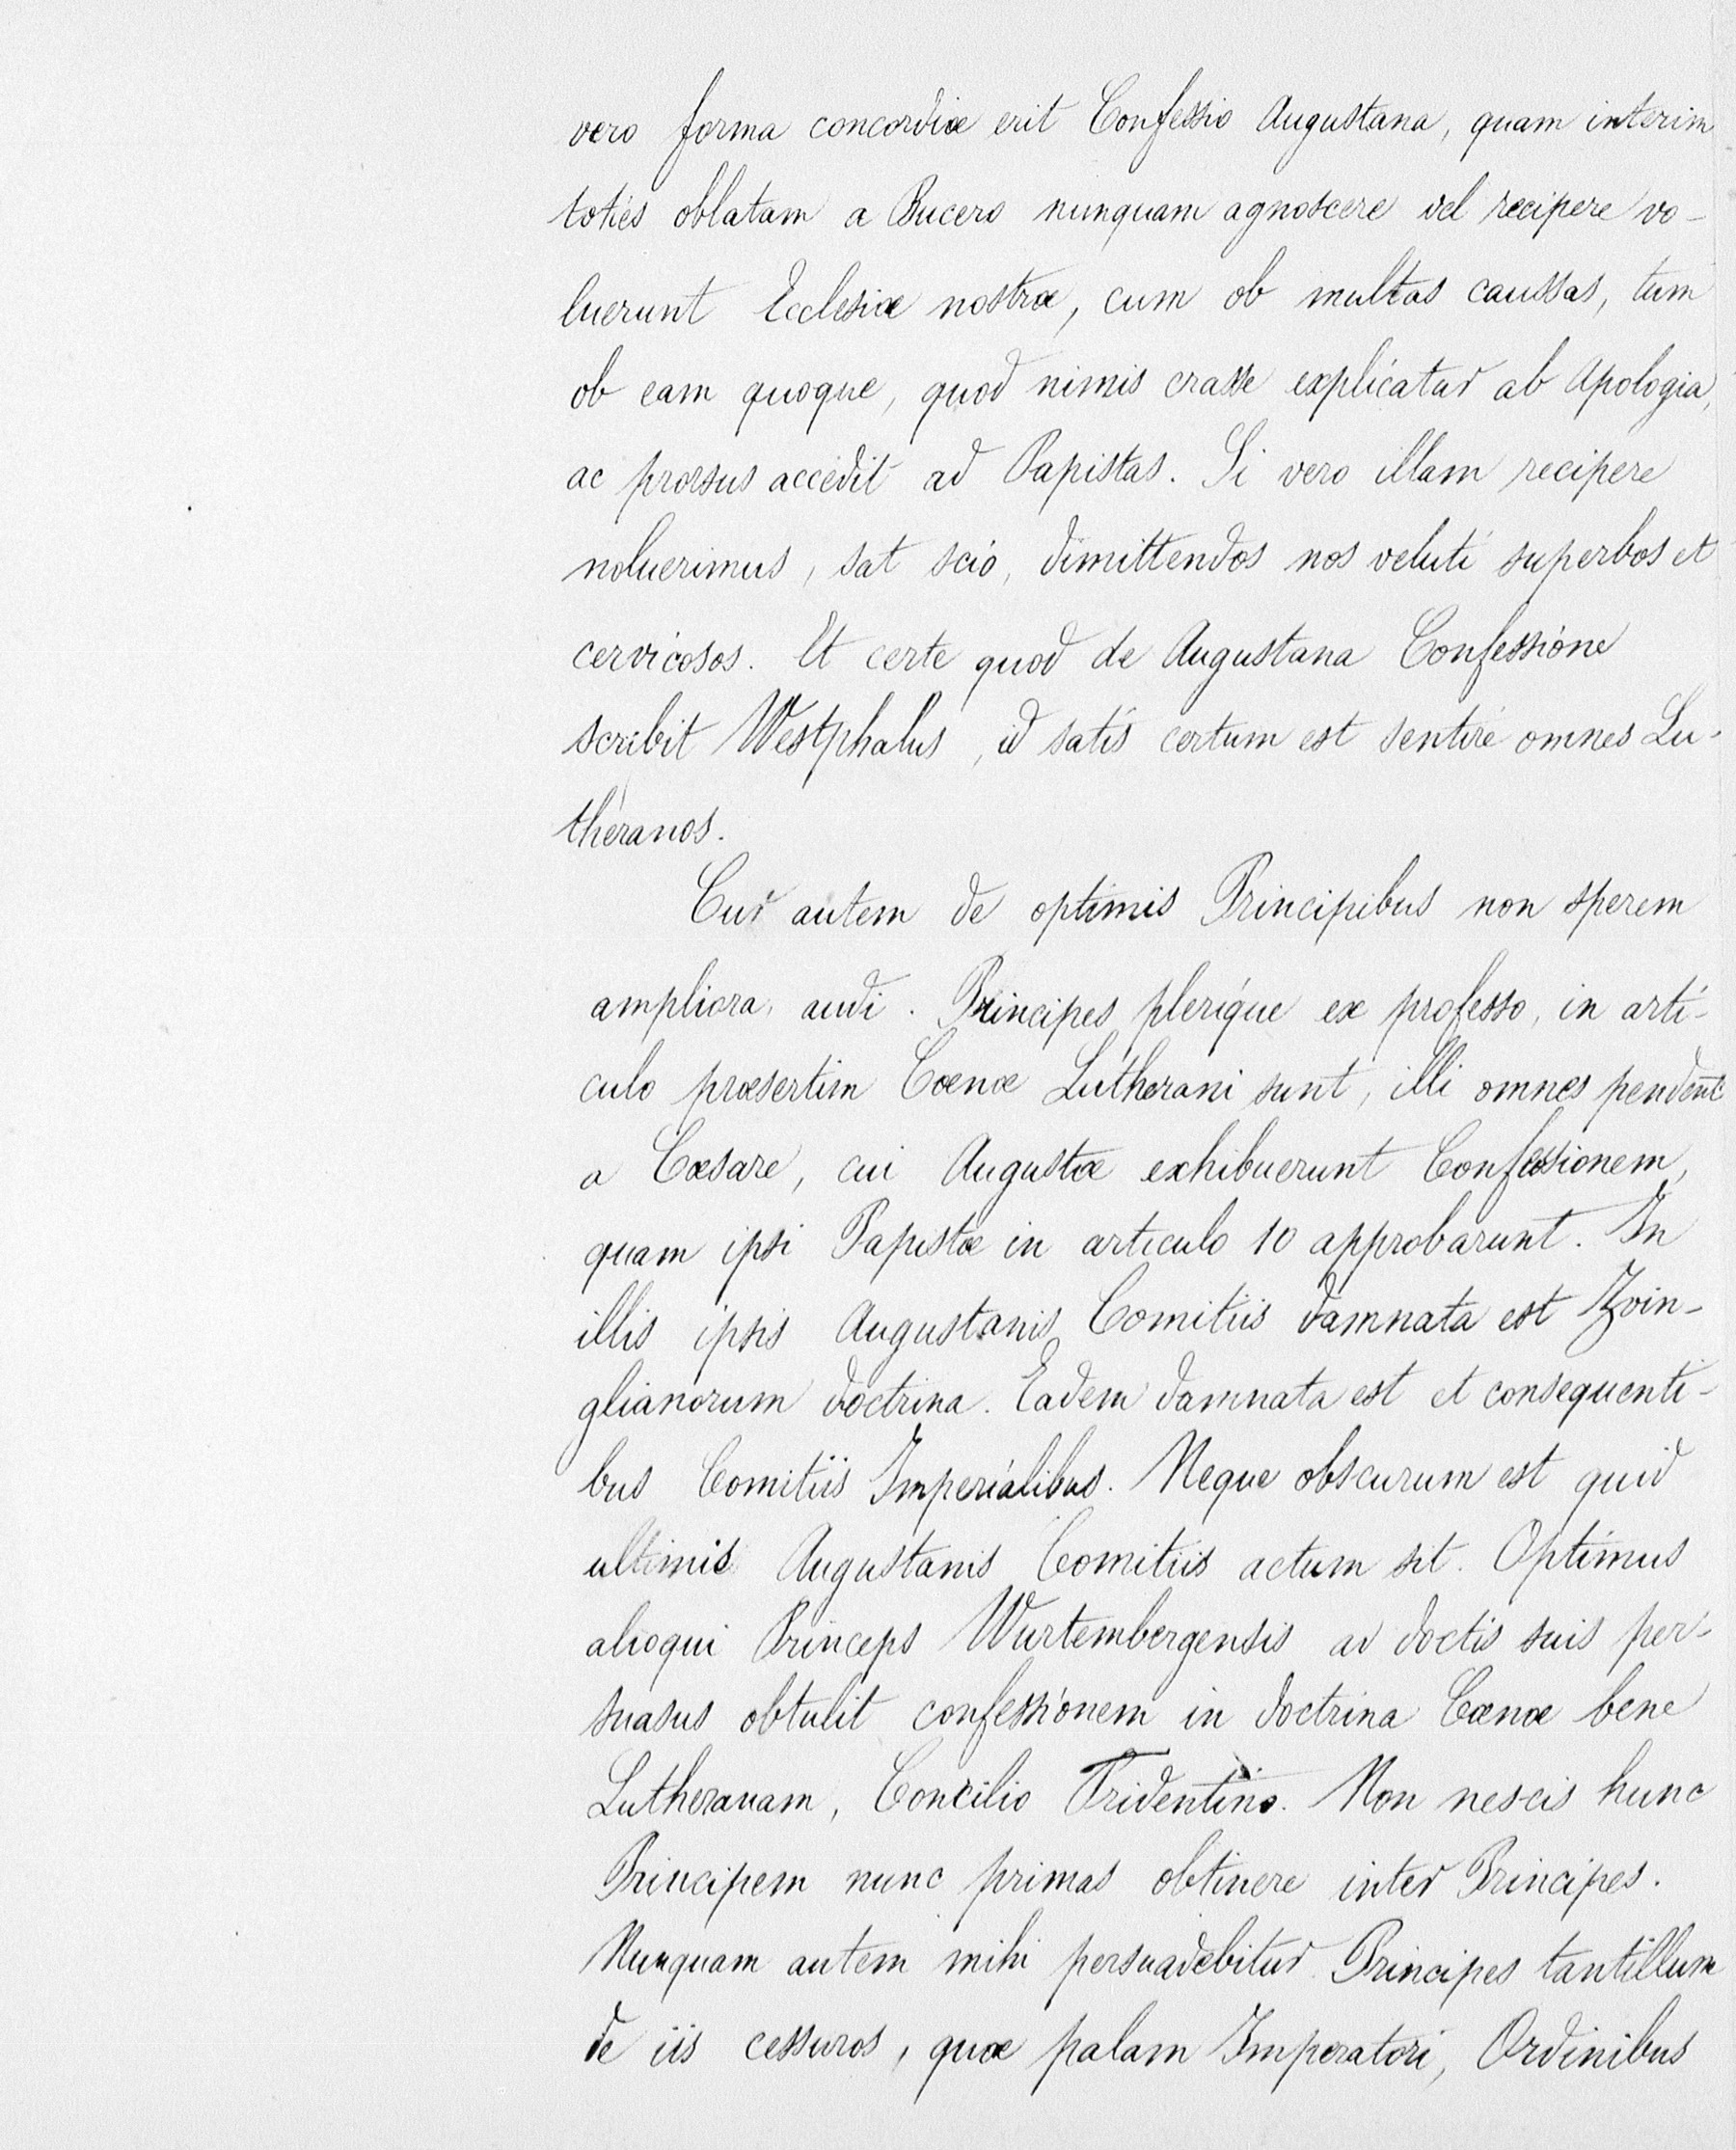 vero forma concordiæ erit Confessio Augustana, quam interim
toties oblatam a Bucero nunquam agnoscere vel recipere vo-
luerunt Ecclesiæ nostræ, cum ob multas caussas, tum
ob eam quoque, quod nimis crasse explicatur ab Apologia,
ac prorsus accedit ad Papistas. Si vero illam recipere
noluerimus, sat scio, dimittendos nos veluti superbos et
cervicosos. Et certe quod de Augustana Confessione
scribit Westphalus, id satis certum est sentire omnes Lu-
theranos.
Cur autem de optimis Principibus non sperem
ampliora, audi. Principes plerique ex professo, in arti-
culo præsertim Cœnæ Lutherani sunt, illi omnes pendent
a Cæsare, cui Augustæ exhibuerunt Confessionem,
quam ipsi Papistæ in articulo 10 approbarunt. In
illis ipsis Augustanis Comitiis damnata est Zvin-
glianorum doctrina. Eadem damnata est et consequenti-
bus Comitiis Imperialibus. Neque obscurum est quid
ultimis Augustanis Comitiis actum sit. Optimus
alioqui Princeps Wurtembergensis ad doctis suis per-
suasus obtulit confessionem in doctrina Cœnæ bene
Lutheranam, Concilio Tridentino. Non nescis hunc
Principem nunc primas obtinere inter Principes.
Nunquam autem mihi persuadebitur Principes tantillum
de iis cessuros, quæ palam Imperatori, Ordinibus